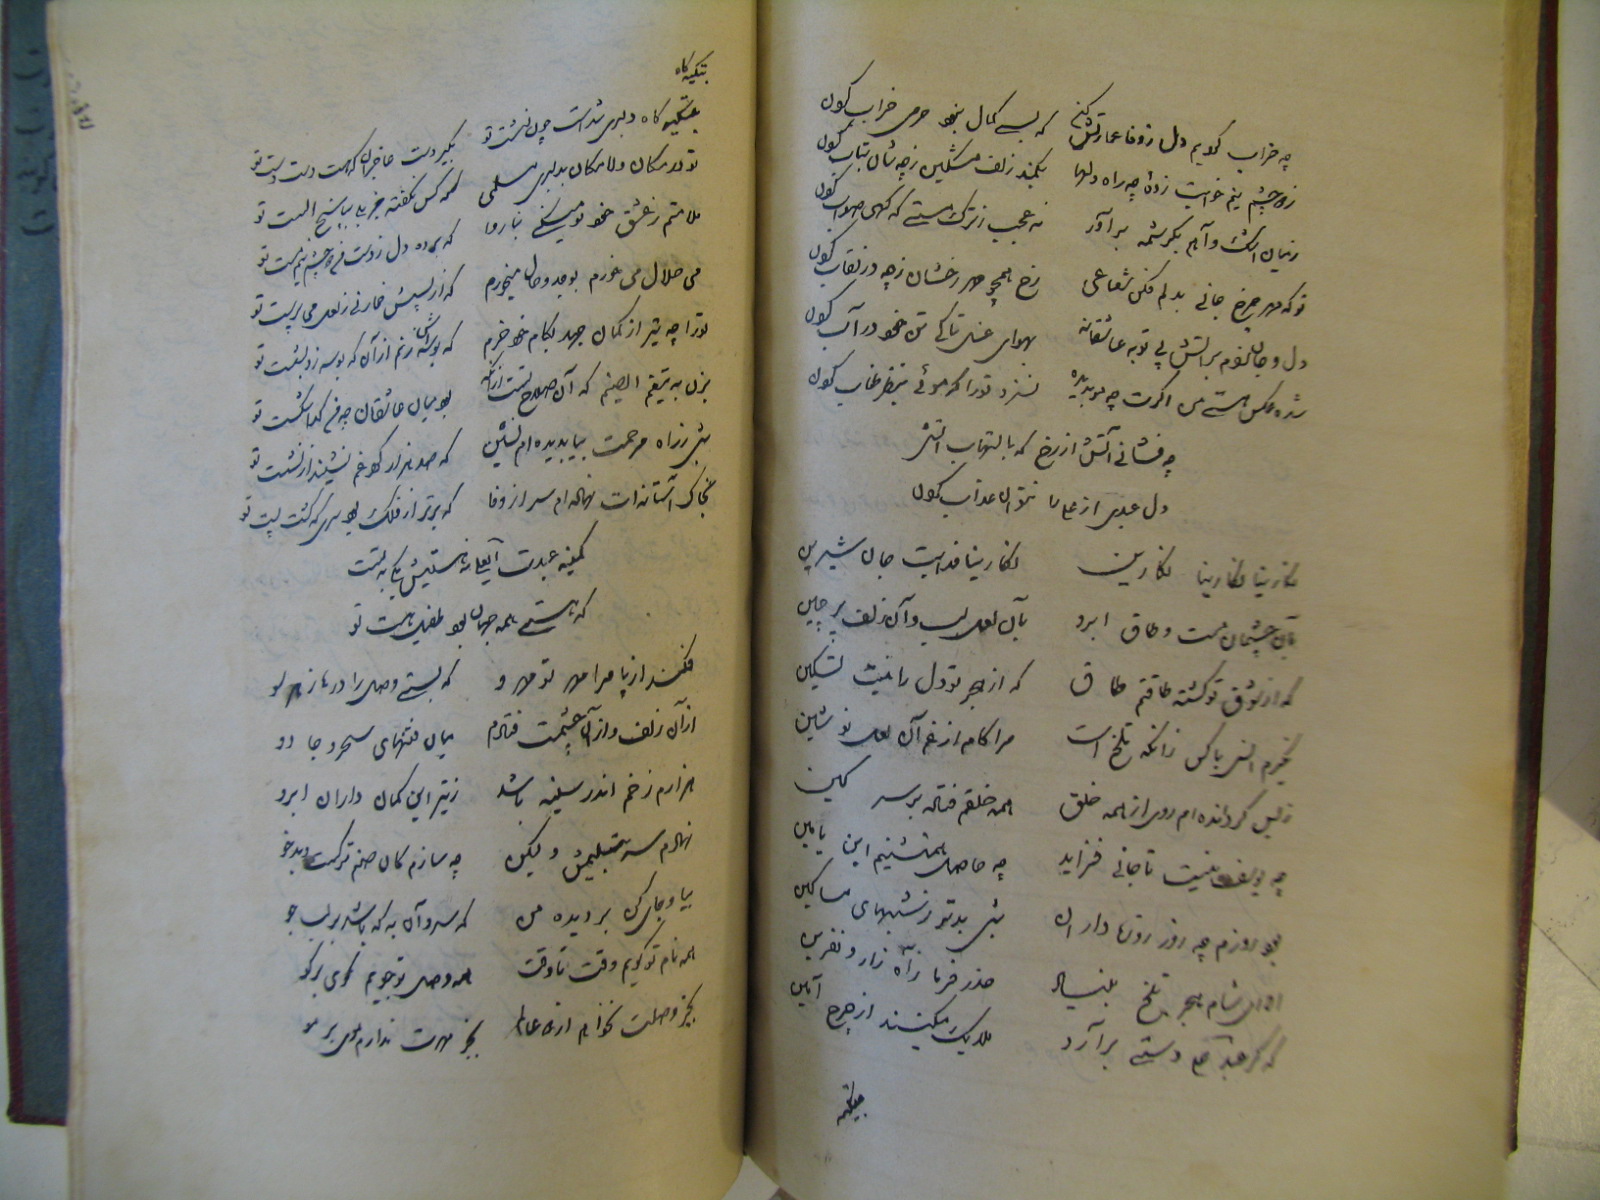 چه خراب گویم دل زوفا عمارتش کنی که بسی کمال بود حرمی خراب کون
زدو چشم نیم خوابت زده چه راه دلها بکمند زلف مشکین زچه شان بتاب کون
زمیان اشک و آهم بکرشمه برآور نه عجب زترک مستی که کهی صواب کون
تو که مهر چرخ جانی بدلم فکن شعاعی رخ همچو مهر رخشان زچه در نقاب کون
دل و جان بر آتش پی توبه عاشقانه بهوای غسل تا کی تن خود در آب کون
شده عکس هستی من اگرت چه مو بدیده نسزد تو را که موئی بنظر طناب کون
چه فشانی آتش از رخ که بالتهاب آتش
دل عبدی از علی را نتوان عذاب کون
نگارینا نگارینا نگارین نگارینا فدایت جان شیرین
بآن چشمان مست و طاق ابرو بآن لعل لب و آن زلف پرچین
که از شوق تو گشته طاقتم طاق که از هجر تو دل را نیست تسکین
نگیرم انس با کس زانکه تلخ است مرا کام از غم آن لعل نوشین
زبس گردانده ام روی از همه خلق همه خلقم فتاده بر سر کین
چه یوسف نیست تا جانی فزاید چه حاصل همنشینم ابن یامین
بود روزم چه روز روزه داران شبی بدتر زشبهای مساکین
امان شام هجر تلخ حذر فرما زآه زار و نفرین
که گر عبد علی دستی برآرد ملایک میکنند از چرخ آمین
بتکیه گاه
بتکیه گاه دلبری شد است چون نشست تو بگیر دست عاجزان که هست دست دست تو
تو در مکان و لامکان بدلبری مسلمی که کس نگفته جز بلی بپاسخ الست تو
ملامتم زعشق خود تو میکنی بنا روا که برده دل زدست من دو چشم نیم مست تو
می حلال می خورم بوجد و حال میخورم که از لبش خمارنی زلعل می پرست تو
تو را چه تیر از کمان جهد بکام خود خرم که بوسه اش زنم از آن که بوسه زد بشست تو
بزن به تیغم ای صنم که آن صلاح تست ازآنکه بود میان عاشقان چه فخر کداشکست تو
شبی زراه مرحمت بیا بدیده ام نشین که صد هزار کوه غم نشیند از نشست تو
بخاک آستانه ات نهاده ام سر از وفا که برتر از فلک بود سری که گشت پست تو
کمینه عبدت
که هستی همه جهان بود طفیل هست تو
فکند از پا مرا مهر تو مهرو که بستی وصل را در باز بر او
از آن زلف و از آن چشمت فتادم میان فتنهای سحر و جادو
هزارم زخم اندر سینه باشد زتیر این کمان داران ابرو
نهادم سر بتسلیمش ولیکن چه سازم کان صنم ترکست و بدخو
بیا و جای کن بر دیده من که سرو آن به که باشد بر لب جو
همه نام تو گویم وقت تا وقت همه وصل تو جویم کوی بر کو
بجز وصلت نخواهم از دو عالم بجز مهرت ندارم موی بر مو